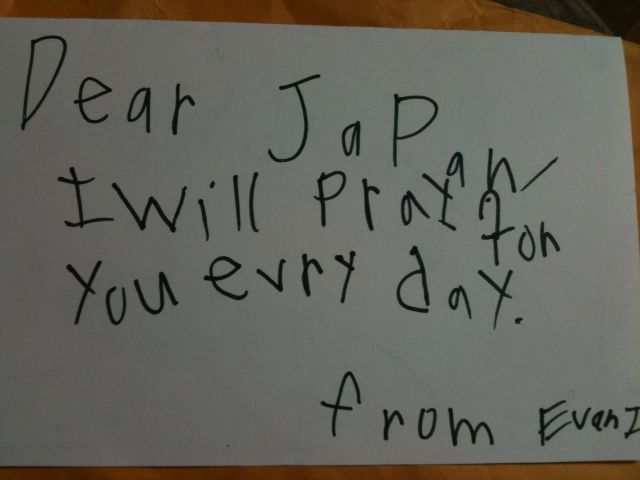 Dear Japan,
I will pray for
you evry day.
from Evan I